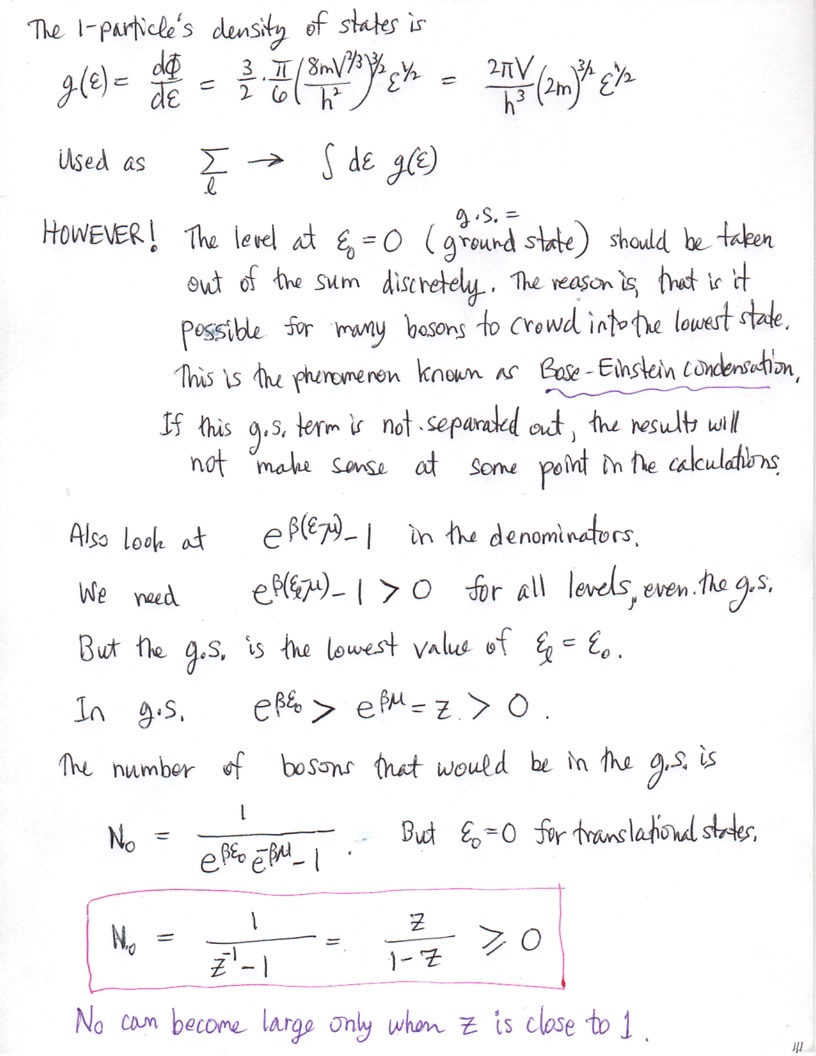 The 1-particle's density of states is
g(ε) = dΦ/dε = 3/2 · π/6 (8mV^{2/3}/h²)^{3/2} ε^{1/2} = 2πV/h³ (2m)^{3/2} ε^{1/2}
Used as Σ_l → ∫ dε g(ε)
g.s. =
HOWEVER! The level at ε₀ = 0 (ground state) should be taken
out of the sum discretely. The reason is, that is it
possible for many bosons to crowd into the lowest state.
This is the phenomenon known as Bose-Einstein condensation,
If this g.s. term is not separated out, the results will
not make sense at some point in the calculations.
Also look at e^{β(ε-μ)} - 1 in the denominators.
We need e^{β(ε_l-μ)} - 1 > 0 for all levels, even the g.s.
But the g.s. is the lowest value of ε_l = ε₀.
In g.s. e^{βε₀} > e^{βμ} = z > 0.
The number of bosons that would be in the g.s. is
N₀ = 1/(e^{βε₀} e^{-βμ} - 1). But ε₀ = 0 for translational states.
N₀ = 1/(z^{-1} - 1) = z/(1 - z) ≥ 0
No can become large only when z is close to 1.